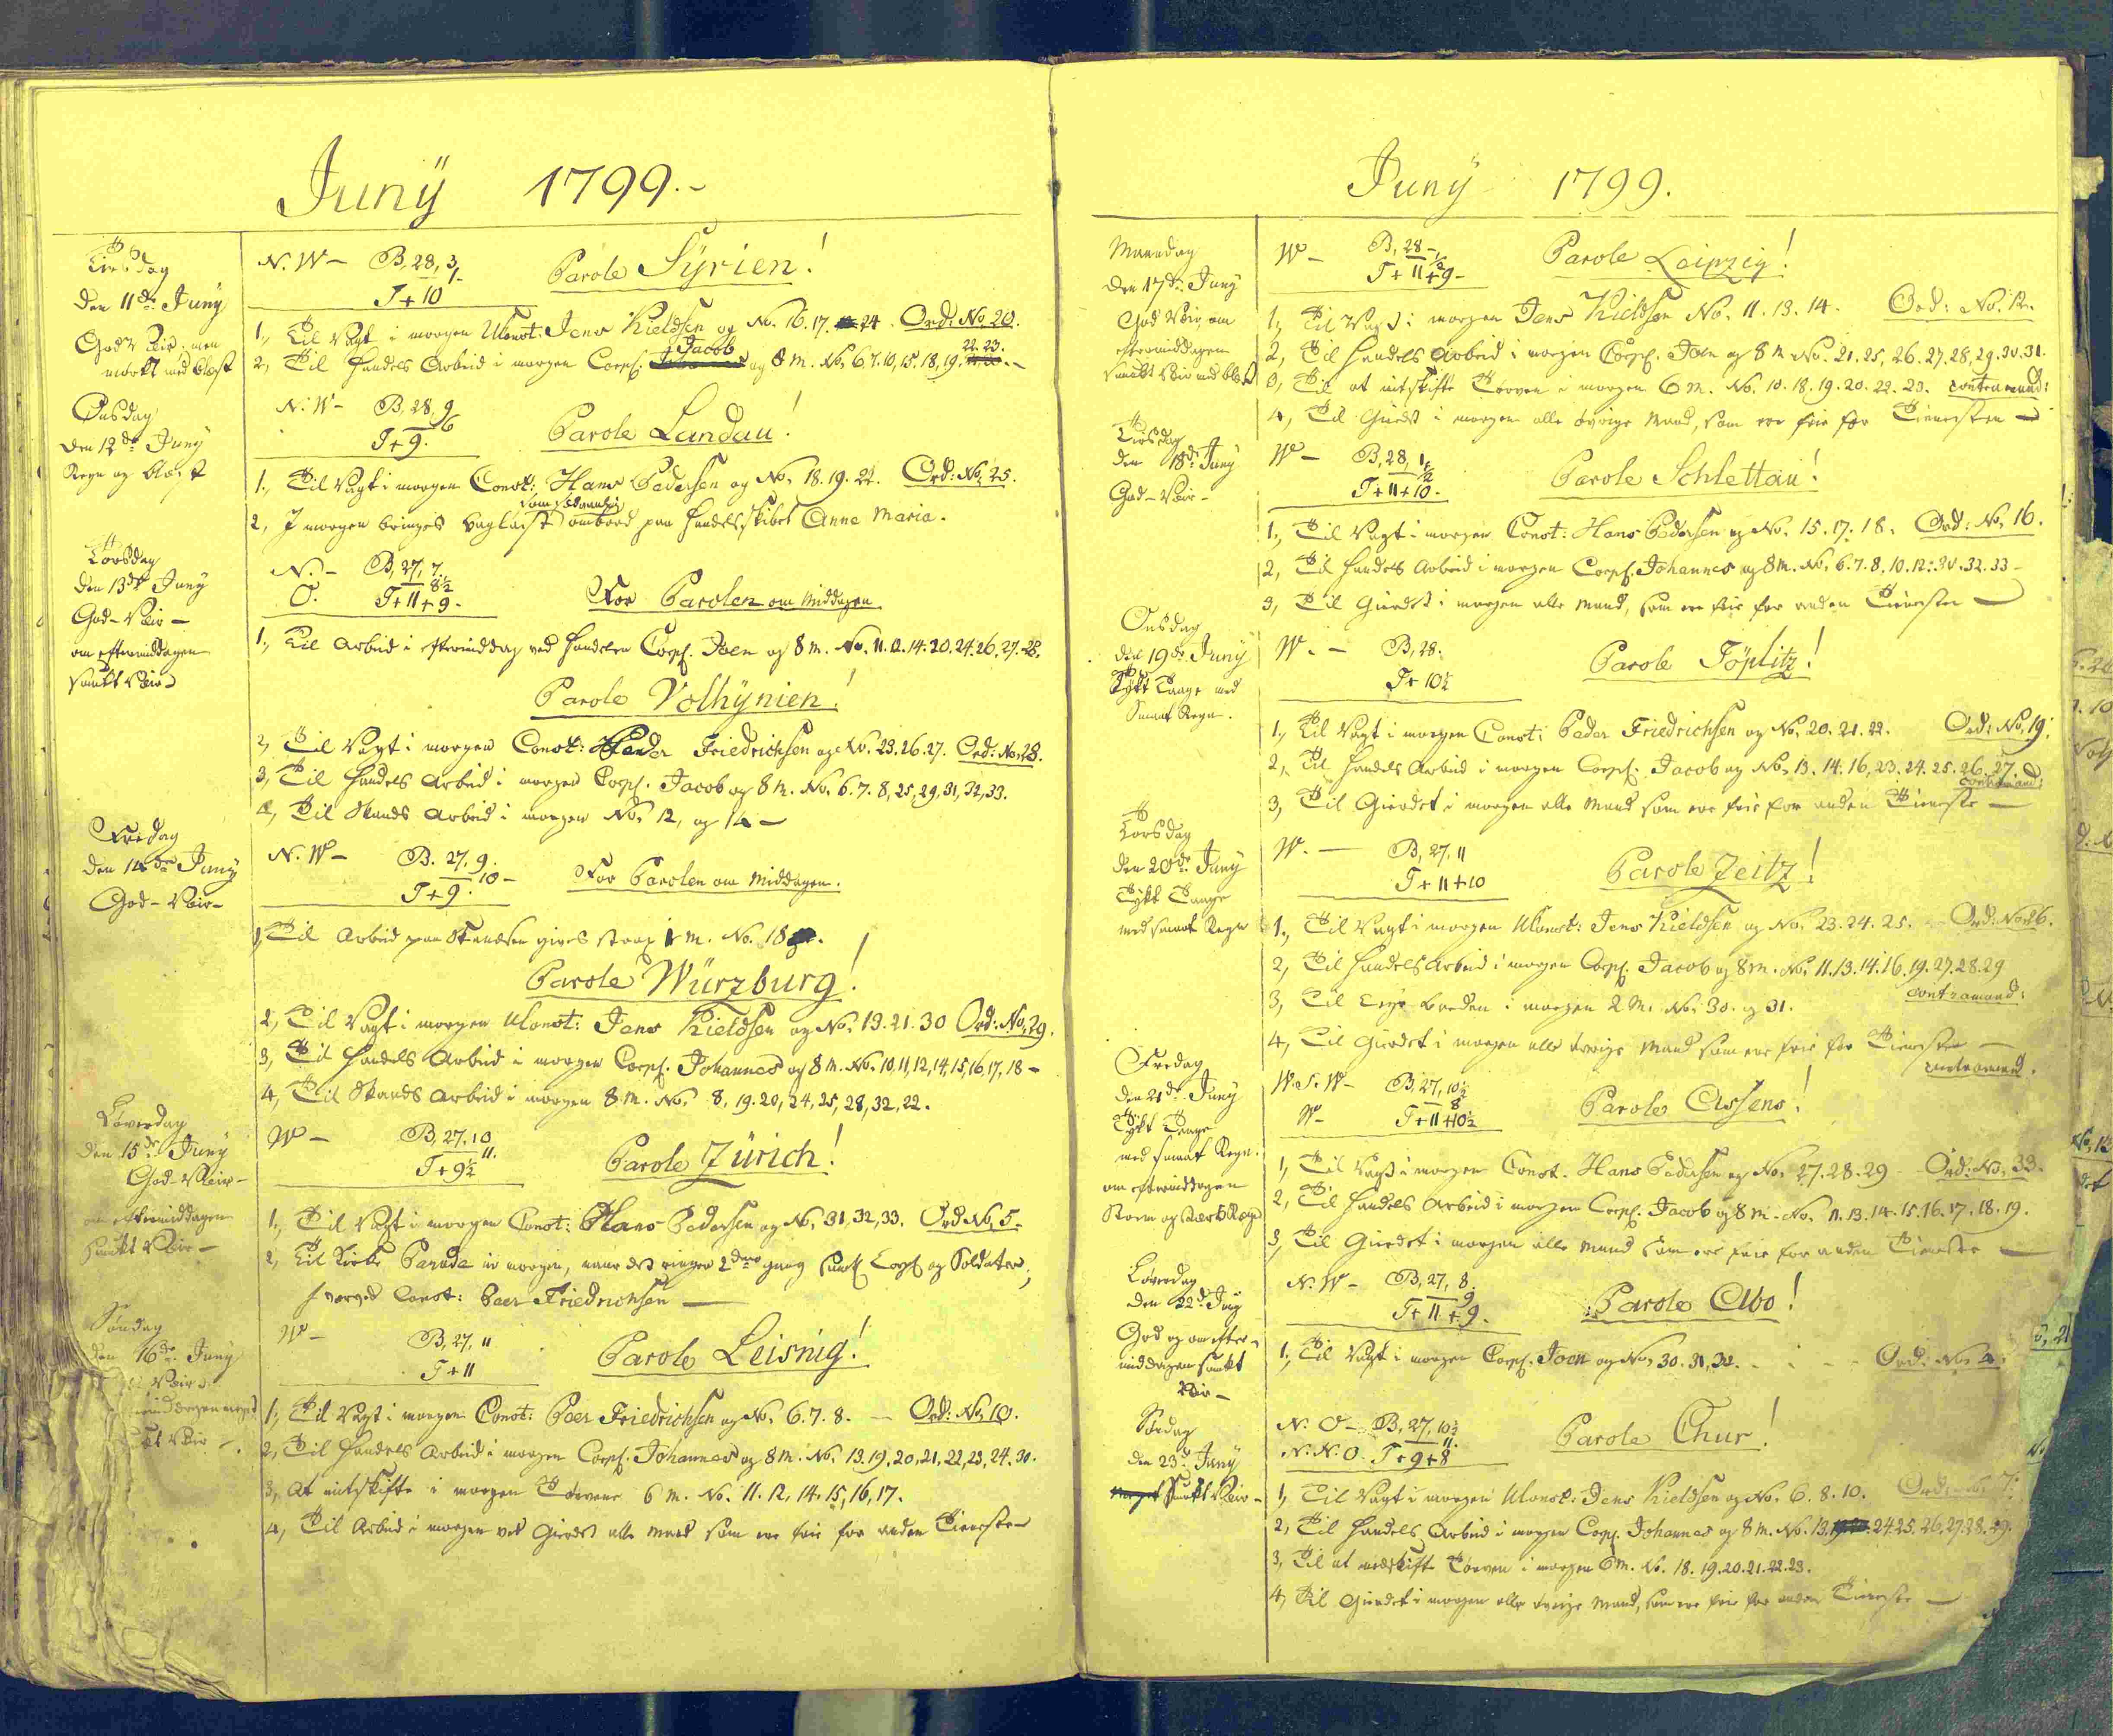 Junÿ 1799.-
Tirsdag
den 11de Juny
God Veir, men
mørkt med blæst
N. W - B, 28, 3/1-
T + 10
Parole Sÿrien!
1, Til Vagt i morgen Uconst: Jens Kieldsen og No. 16. 17. 24. Ord: No. 20.
2, Til Handels Arbeid i morgen Corpl: Jacob og 8 M. No. 6. 7. 10, 15, 18, 19, 22. 23.
Onsdag
den 12de Juny
Regn og blæst
N. W - B, 28, 9/6
T + 9.
Parole Landau!
1., Til Vagt i morgen Const: Hans Pedersen og No. 18. 19. 22. Ord: No. 25.
2, I morgen bringes Baglast ombord paa Handelsskibet Anna Maria.
Torsdag
den 13de Juny
God - Veir -
om eftermiddagen
smukt Veir
N. - B, 27, 7. 8½
O. T + 11 + 9.
For Parolen om Middagen
1, Til Arbeid i eftermiddag ved Handelen Corpl. Joen og 8 M. No. 11. 12. 14. 20. 24. 26. 27. 28.
Parole Volhÿnien!
2, Til Vagt i morgen Const: Peder Friedrichsen og No. 23. 26. 27. Ord: No. 28.
3, Til Handels Arbeid i morgen Corpl. Jacob og 8 M. No. 6. 7. 8, 25, 29, 31, 32, 33.
4, Til Stands Arbeid i morgen No. 12, og 14 -
Fredag
den 14de Juny
God - Veir -
N. W - B. 27. 9. 10 -
T + 9.
For Parolen om Middagen.
1, Til Arbeid paa Skandsen gives strax 1 M. No. 18.
Parole Würzburg!
2, Til Vagt i morgen Uconst: Jens Kieldsen og No. 19. 21. 30 Ord: No. 29.
3, Til Handels Arbeid i morgen Corpl. Johannes og 8 M. No. 10, 11, 12, 14, 15, 16, 17, 18 -
4, Til Stands Arbeid i morgen 8 M. No. 8, 19. 20, 24, 25, 28, 32, 22.
Løverdag
den 15de Juny
God - Veir -
om eftermiddagen
smukt Veir -
W - B, 27. 10 11.
T + 9½
Parole Zürich!
1., Til Vagt i morgen Const: Hans Pedersen og No. 31, 32, 33. Ord No. 5.
2, Til Kirke Parade i morgen, naar det ringer 2den gang samtl Corpl og Soldater,
hvorved Const: Peer Friedrichsen -
Søndag
den 16de Juny
Veir
W - B, 27, 11
T + 11
Parole Leisnig!
1, Til Vagt i morgen Const: Peer Friedrichsen og No. 6. 7. 8. - Ord: No. 10.
2, Til Handels Arbeid i morgen Corpl. Johannes og 8 M. No. 13. 19. 20, 21, 22, 23, 24. 30.
3, At udskifte i morgen Tørvene 6 M. No. 11. 12, 14. 15, 16, 17.
4, Til Arbeid i morgen ved Gierdet alle Mand som ere frie for anden Tieneste
Juny 1799.
Mandag
den 17de Juny
God Veir, om
eftermiddagen
smukt Veir med blæst
W - B, 28 - ½
T + 11 + 9 -
Parole Leipzig!
1, Til Vagt i morgen Jens Kieldsen No. 11. 13. 14. Ord: No. 12.
2, Til Handels Arbeid i morgen Corpl. Joen og 8 M No. 21. 25, 26. 27. 28, 29. 30. 31.
3, Til at udskifte Tørven i morgen 6 M. No. 10. 18. 19. 20. 22. 23. contramand:
4, Til Gierdet i morgen alle øvrige Mand, som ere frie for Tienesten -
Tirsdag
den 18de Juny
God - Veir -
W - B, 28, 1/2
T + 11 + 10.
Parole Schlettau!
1, Til Vagt i morgen Const: Hans Pedersen og No. 15. 17. 18. Ord: No. 16.
2, Til Handels Arbeid i morgen Corpl. Johannes og 8 M. No. 6. 7. 8. 10. 12. 30. 32. 33 -
3, Til Gierdet i morgen alle Mand, som ere frie for anden Tieneste -
Onsdag
den 19de Juny
Tykt Taage med
Smaat Regn.
W. - B, 28.
T + 10½
Parole Töplitz!
1, Til Vagt i morgen Const: Peder Friedrichsen og No. 20. 21. 22. Ord: No. 19.
2, Til Handels Arbeid i morgen Corpl: Jacob og No. 13. 14. 16, 23. 24. 25. 26. 27.
contramand:
3, Til Gierdet i morgen alle Mand som ere frie for anden Tieneste -
Torsdag
den 20de Juny
Tykt Taage
med smaat Regn
W. - B, 27. 11
T + 11 + 10
Parole Zeitz!
1., Til Vagt i morgen Uconst: Jens Kieldsen og No. 23. 24. 25. Ord: No. 26.
2, Til Handels Arbeid i morgen Corpl. Jacob og 8 M. No. 11. 13. 14. 16. 19. 27. 28. 29
3, Til i morgen 2 M. No. 30. og 31. contramand:
4, Til Gierdet i morgen alle øvrige Mand som ere frie for Tienesten -
contramand.
Fredag
den 21de Juny
Tykt Taage
med smaat Regn.
om eftermiddagen
Storm og stærk Regn
W. S. W - B, 27, 10½ 8
W - T + 11 + 10½
Parole Assens!
1, Til Vagt i morgen Const. Hans Pedersen og No. 27. 28. 29 - Ord: No. 33.
2, Til Handels Arbeid i morgen Corpl. Jacob og 8 M. No. 11. 13. 14. 15. 16. 17. 18. 19.
3, Til Gierdet i morgen alle Mand som ere frie for anden Tieneste -
Løverdag
den 22de Juny
God og om efter-
middagen smukt
Veir -
N. W - B, 27, 8. 9
T + 11 + 9.
Parole Abo!
1, Til Vagt i morgen Corpl. Joen og No. 30. 31, 32. Ord: No. 4.
Søndag
den 23de Juny
smukt Veir -
N. O - B, 27, 10½ 11.
N. N. O. T + 9 + 8
Parole Chur!
1, Til Vagt i morgen Uconst: Jens Kieldsen og No. 6. 8. 10. Ord: No. 7.
2, Til Handels Arbeid i morgen Corpl. Johannes og 8 M. No. 13. 24. 25. 26. 27. 28. 29.
3, Til at udskifte Tørven i morgen 6 M. No. 18. 19. 20. 21. 22. 23.
4, Til Gierdet i morgen alle øvrige Mand, som ere frie for anden Tieneste -